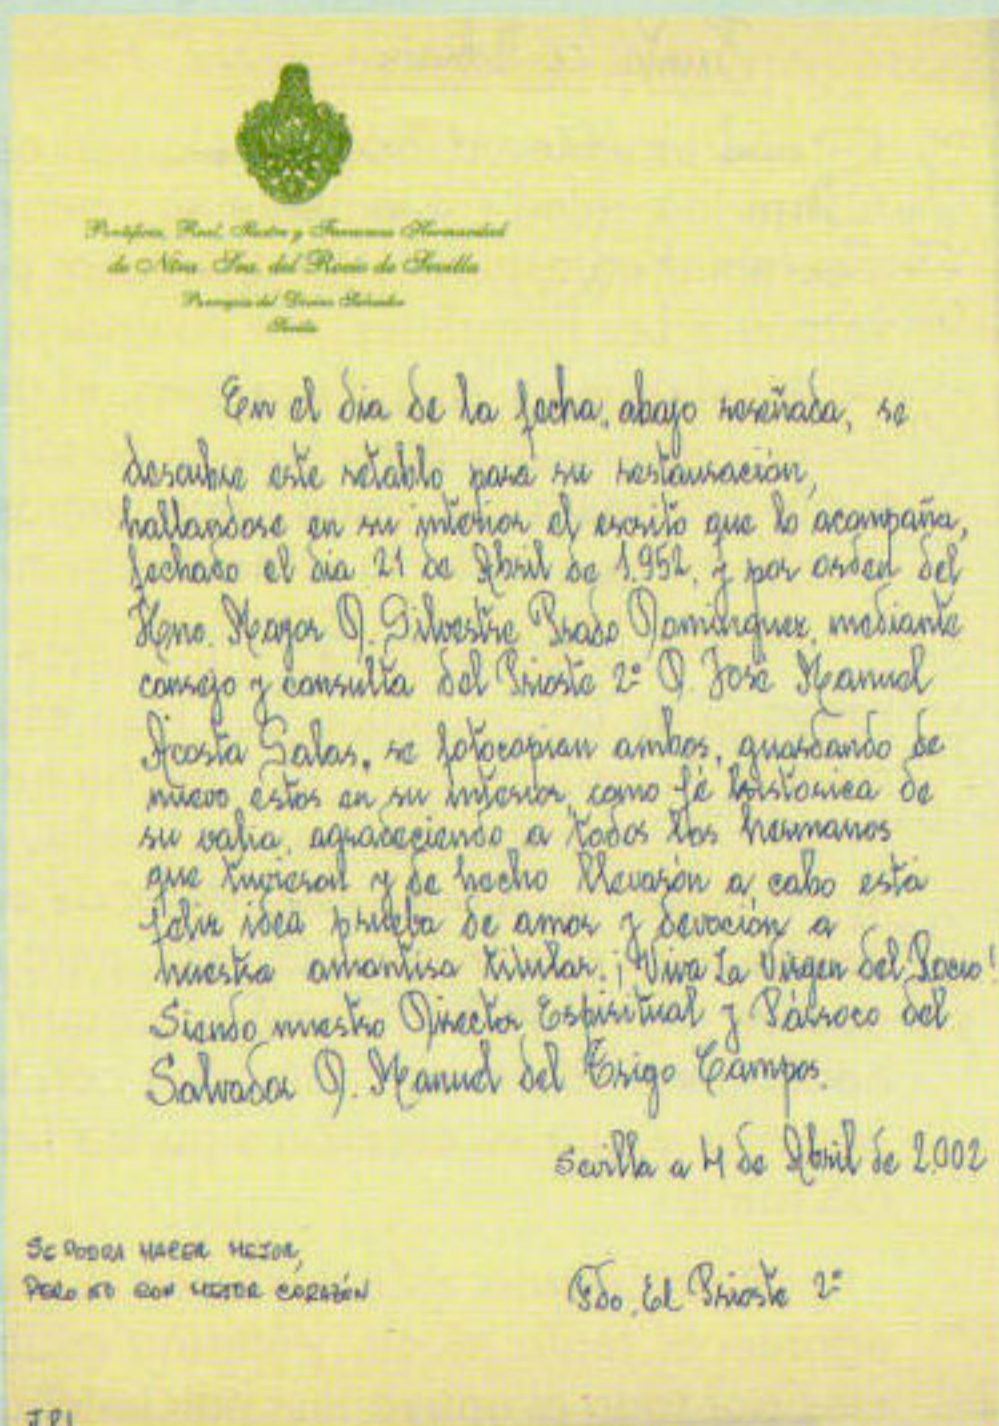 Pontificia, Real, Ilustre y Fervorosa Hermandad
de Ntra. Sra. del Rocío de Sevilla
Parroquia del Divino Salvador
Sevilla
En el dia de la fecha, abajo reseñada, se
descubre este retablo para su restauración,
hallandose en su interior el escrito que lo acompaña,
fechado el dia 21 de Abril de 1.952, y por orden del
Hno. Mayor D. Silvestre Prado Dominguez, mediante
consejo y consulta del Prioste 2º D. José Manuel
Acosta Salas, se fotocopian ambos, guardando de
nuevo estos en su interior, como fé historica de
su valia, agradeciendo a todos los hermanos
que tuvieron y de hecho llevarón a cabo esta
feliz idea prueba de amor y devoción a
nuestra amantisa titular. ¡Viva La Virgen del Rocio!
Siendo nuestro Director Espiritual y Párroco del
Salvador D. Manuel del Trigo Campos.
Sevilla a 4 de Abril de 2.002
SE PODRA HACER MEJOR,
PERO NO CON MEJOR CORAZÓN
Fdo. El Prioste 2º